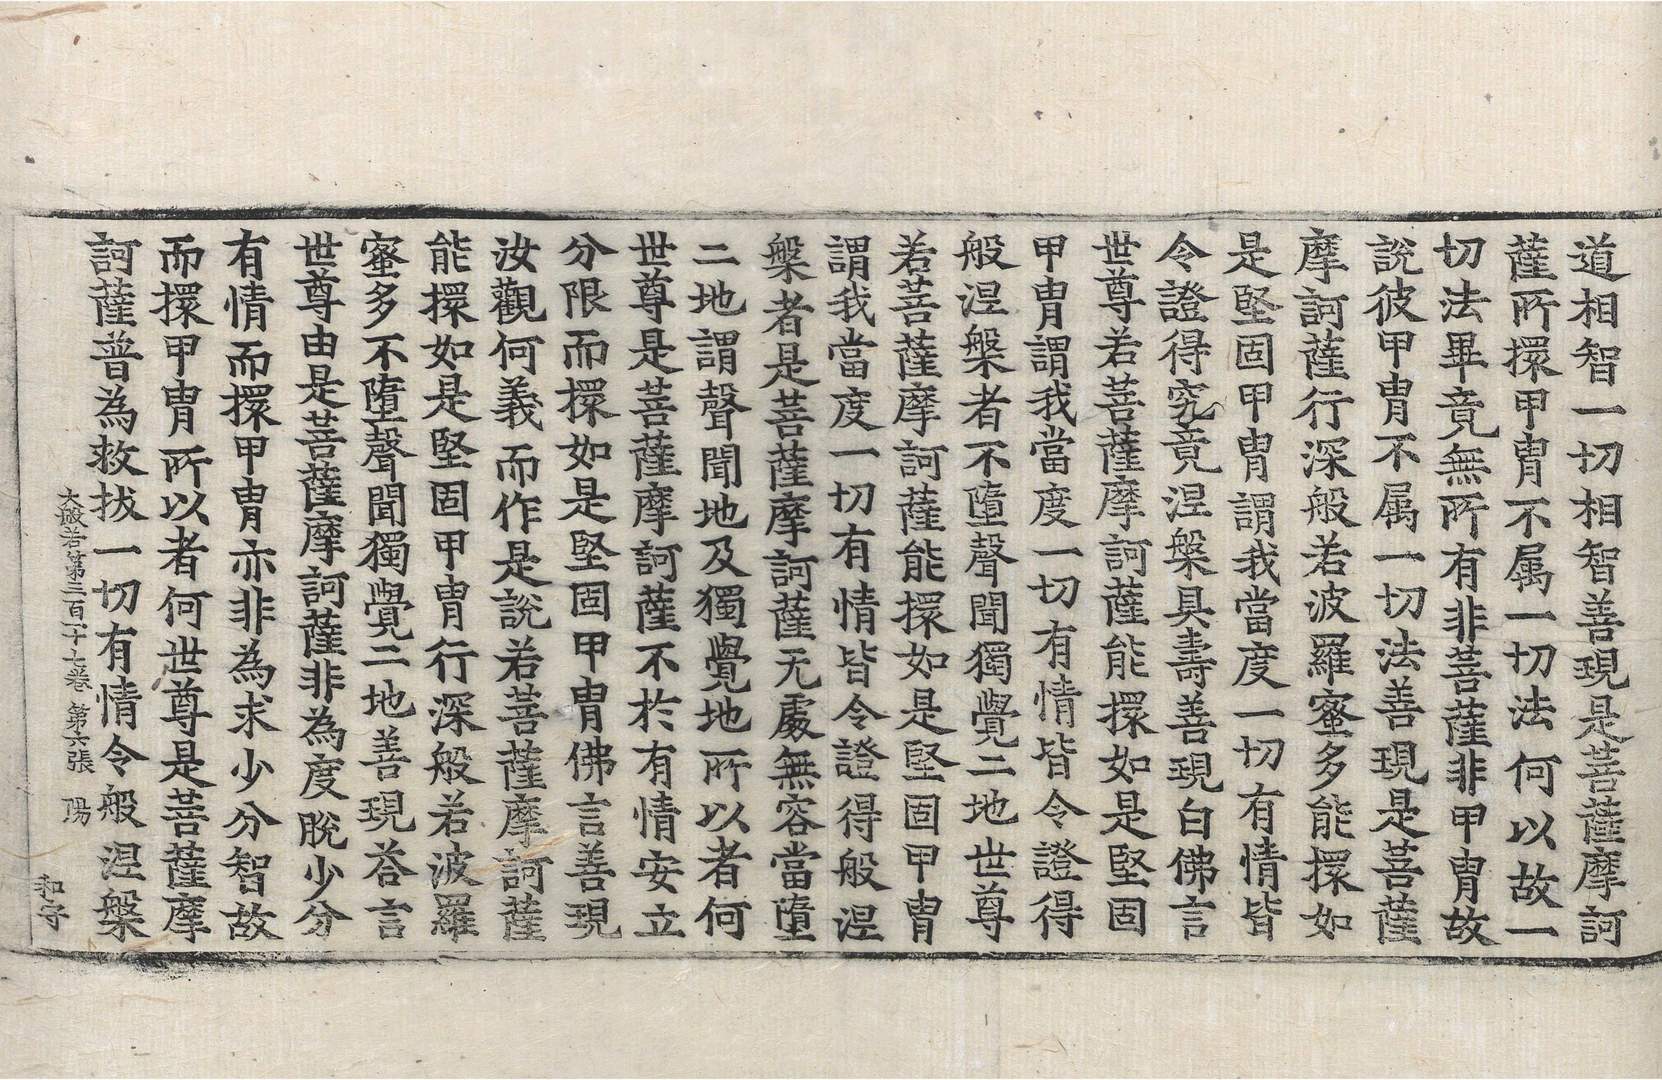 道相智一切相智善現是菩薩摩訶
薩所擐甲冑不属一切法何以故一
切法畢竟無所有非菩薩非甲冑故
說彼甲冑不属一切法善現是菩薩
摩訶薩行深般若波羅蜜多能擐如
是堅固甲冑謂我當度一切有情皆
令證得究竟涅槃具壽善現白佛言
世尊若菩薩摩訶薩能擐如是堅固
甲冑謂我當度一切有情皆令證得
般涅槃者不墮聲聞獨覺二地世尊
若菩薩摩訶薩能擐如是堅固甲冑
謂我當度一切有情皆令證得般涅
槃者是菩薩摩訶薩无處無容當墮
二地謂聲聞地及獨覺地所以者何
世尊是菩薩摩訶薩不於有情安立
分限而擐如是堅固甲冑佛言善現
汝觀何義而作是說若菩薩摩訶薩
能擐如是堅固甲冑行深般若波羅
蜜多不墮聲聞獨覺二地善現荅言
世尊由是菩薩摩訶薩非為度脫少分
有情而擐甲冑亦非為求少分智故
而擐甲冑所以者何世尊是菩薩摩
訶薩普為救拔一切有情令般涅槃
大般若第三百二十七卷 第六張 陽
和守